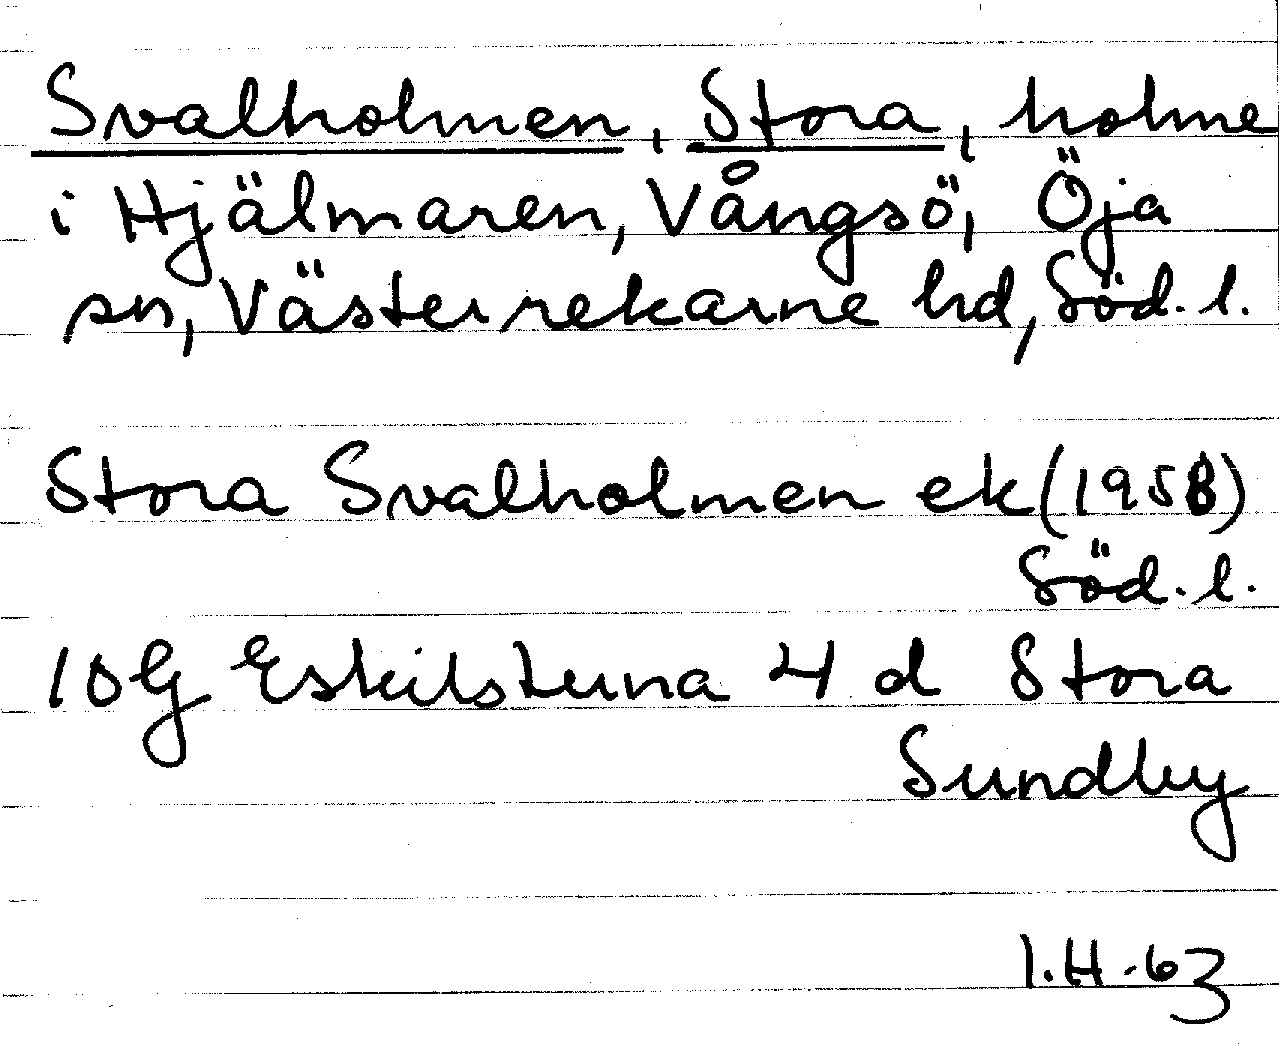 Svalholmen, Stora, holme
i Hjälmaren, Vångsö, Öja
sn, Västerrekarne hd, Söd. l.
Stora Svalholmen ek (1958)
Söd. l.
10G Eskilstuna 4 d Stora
Sundby
I.H.63